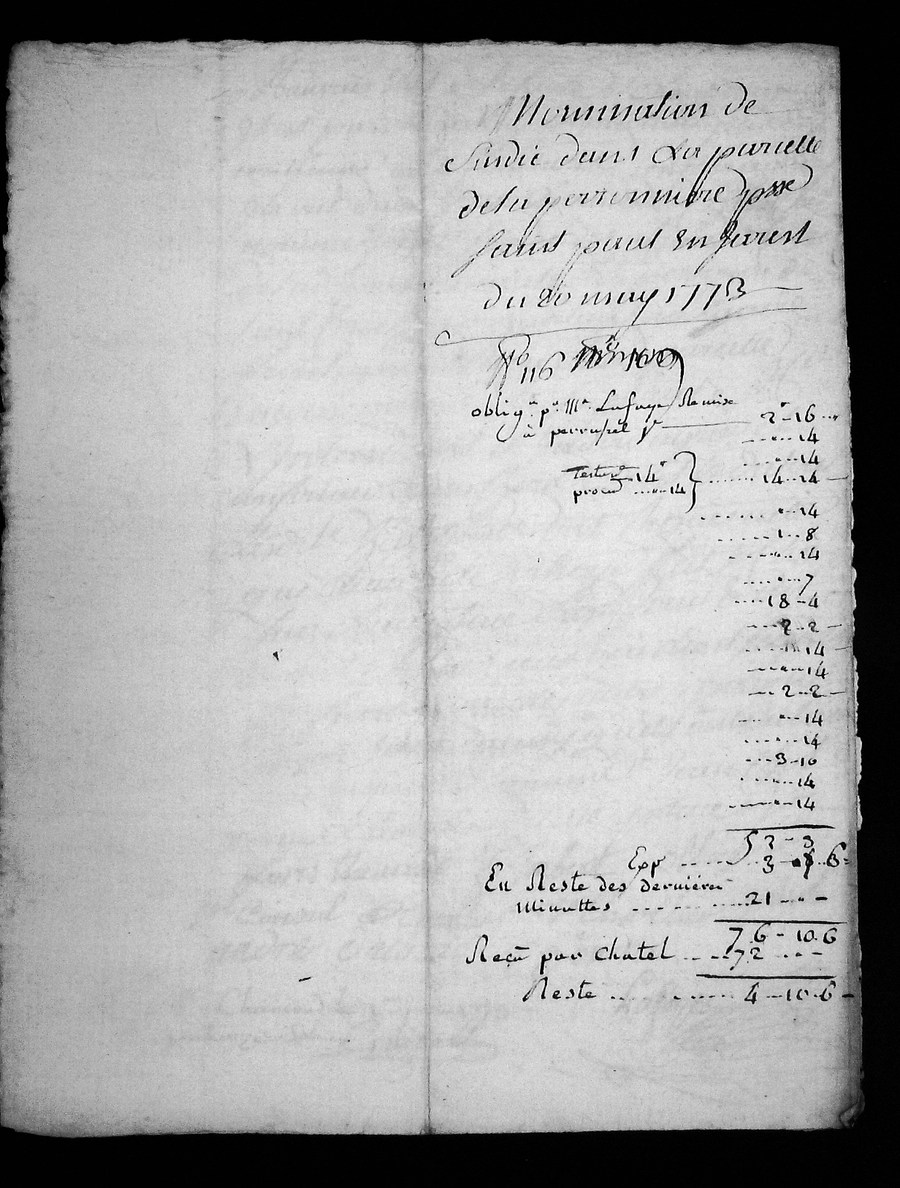 Nomination de
Sindic dans La parcelle
de la perronniere psse
saint paul En Jarest
du 20 may 1773
116
oblign. pr. Mr. Lafaye Remise
à perrussel 2"-16
"-14
"-14
Testart. 14"
procn. "-14 14-14
"-14
1-8
"-14
"-7
18-4
2-2
"-14
"-14
2-2
"-14
"-14
3-10
"-14
"-14
52-3
Exp 3-7-6
En Reste des dernieres
Minuttes 21-"-
76-10-6
Reçu par Chatel 72
Reste 4-10-6